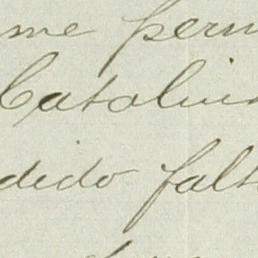 me perm
Catalina
dido falt